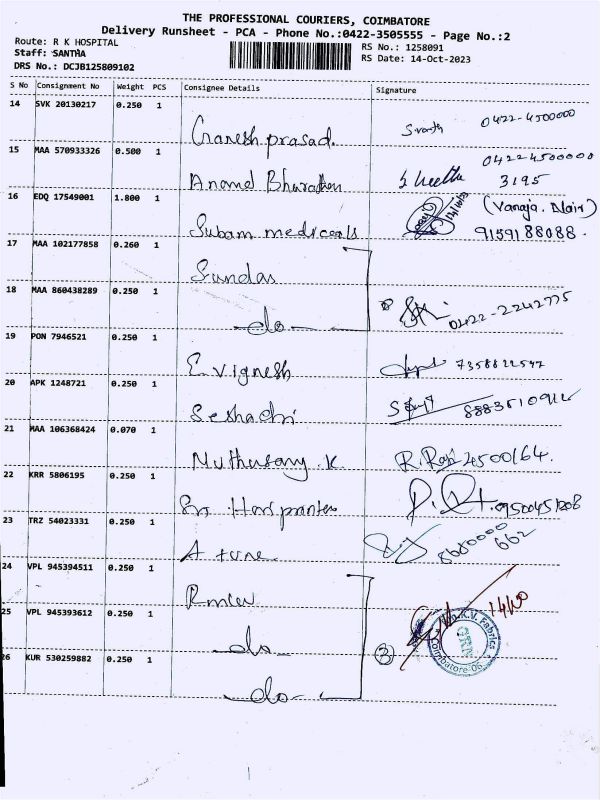 THE PROFESSIONAL COURIERS, COIMBATORE
Delivery Runsheet - PCA - Phone No.:0422-3505555 - Page No.:2
Route: R K HOSPITAL
Staff: SANTHA
DRS No.: DCJB125809102
RS No.: 1258091
RS Date: 14-Oct-2023
S No Consignment No Weight PCS Consignee Details Signature
14 SVK 20130217 0.250 1 Ganesh prasad. 0422-4500000
15 MAA 570933326 0.500 1 Anand 04224500000
3195
16 EDQ 17549001 1.800 1 Subam medicals (Vanaja. Nair)
9159188088.
17 MAA 102177858 0.260 1 Sundar
18 MAA 860438289 0.250 1 -do- 0422-2242775
19 PON 7946521 0.250 1 E vignesh 7358822547
20 APK 1248721 0.250 1 Seshadri
21 MAA 106368424 0.070 1 Muthusamy .K R. 4500164.
22 KRR 5806195 0.250 1 Sri Hari printers
23 TRZ 54023331 0.250 1 A tune 8680000
662
24 VPL 945394511 0.250 1 14/10
25 VPL 945393612 0.250 1 -do-
26 KUR 530259882 0.250 1 -do-
3
K.V. Fabrics
Coimbatore-06